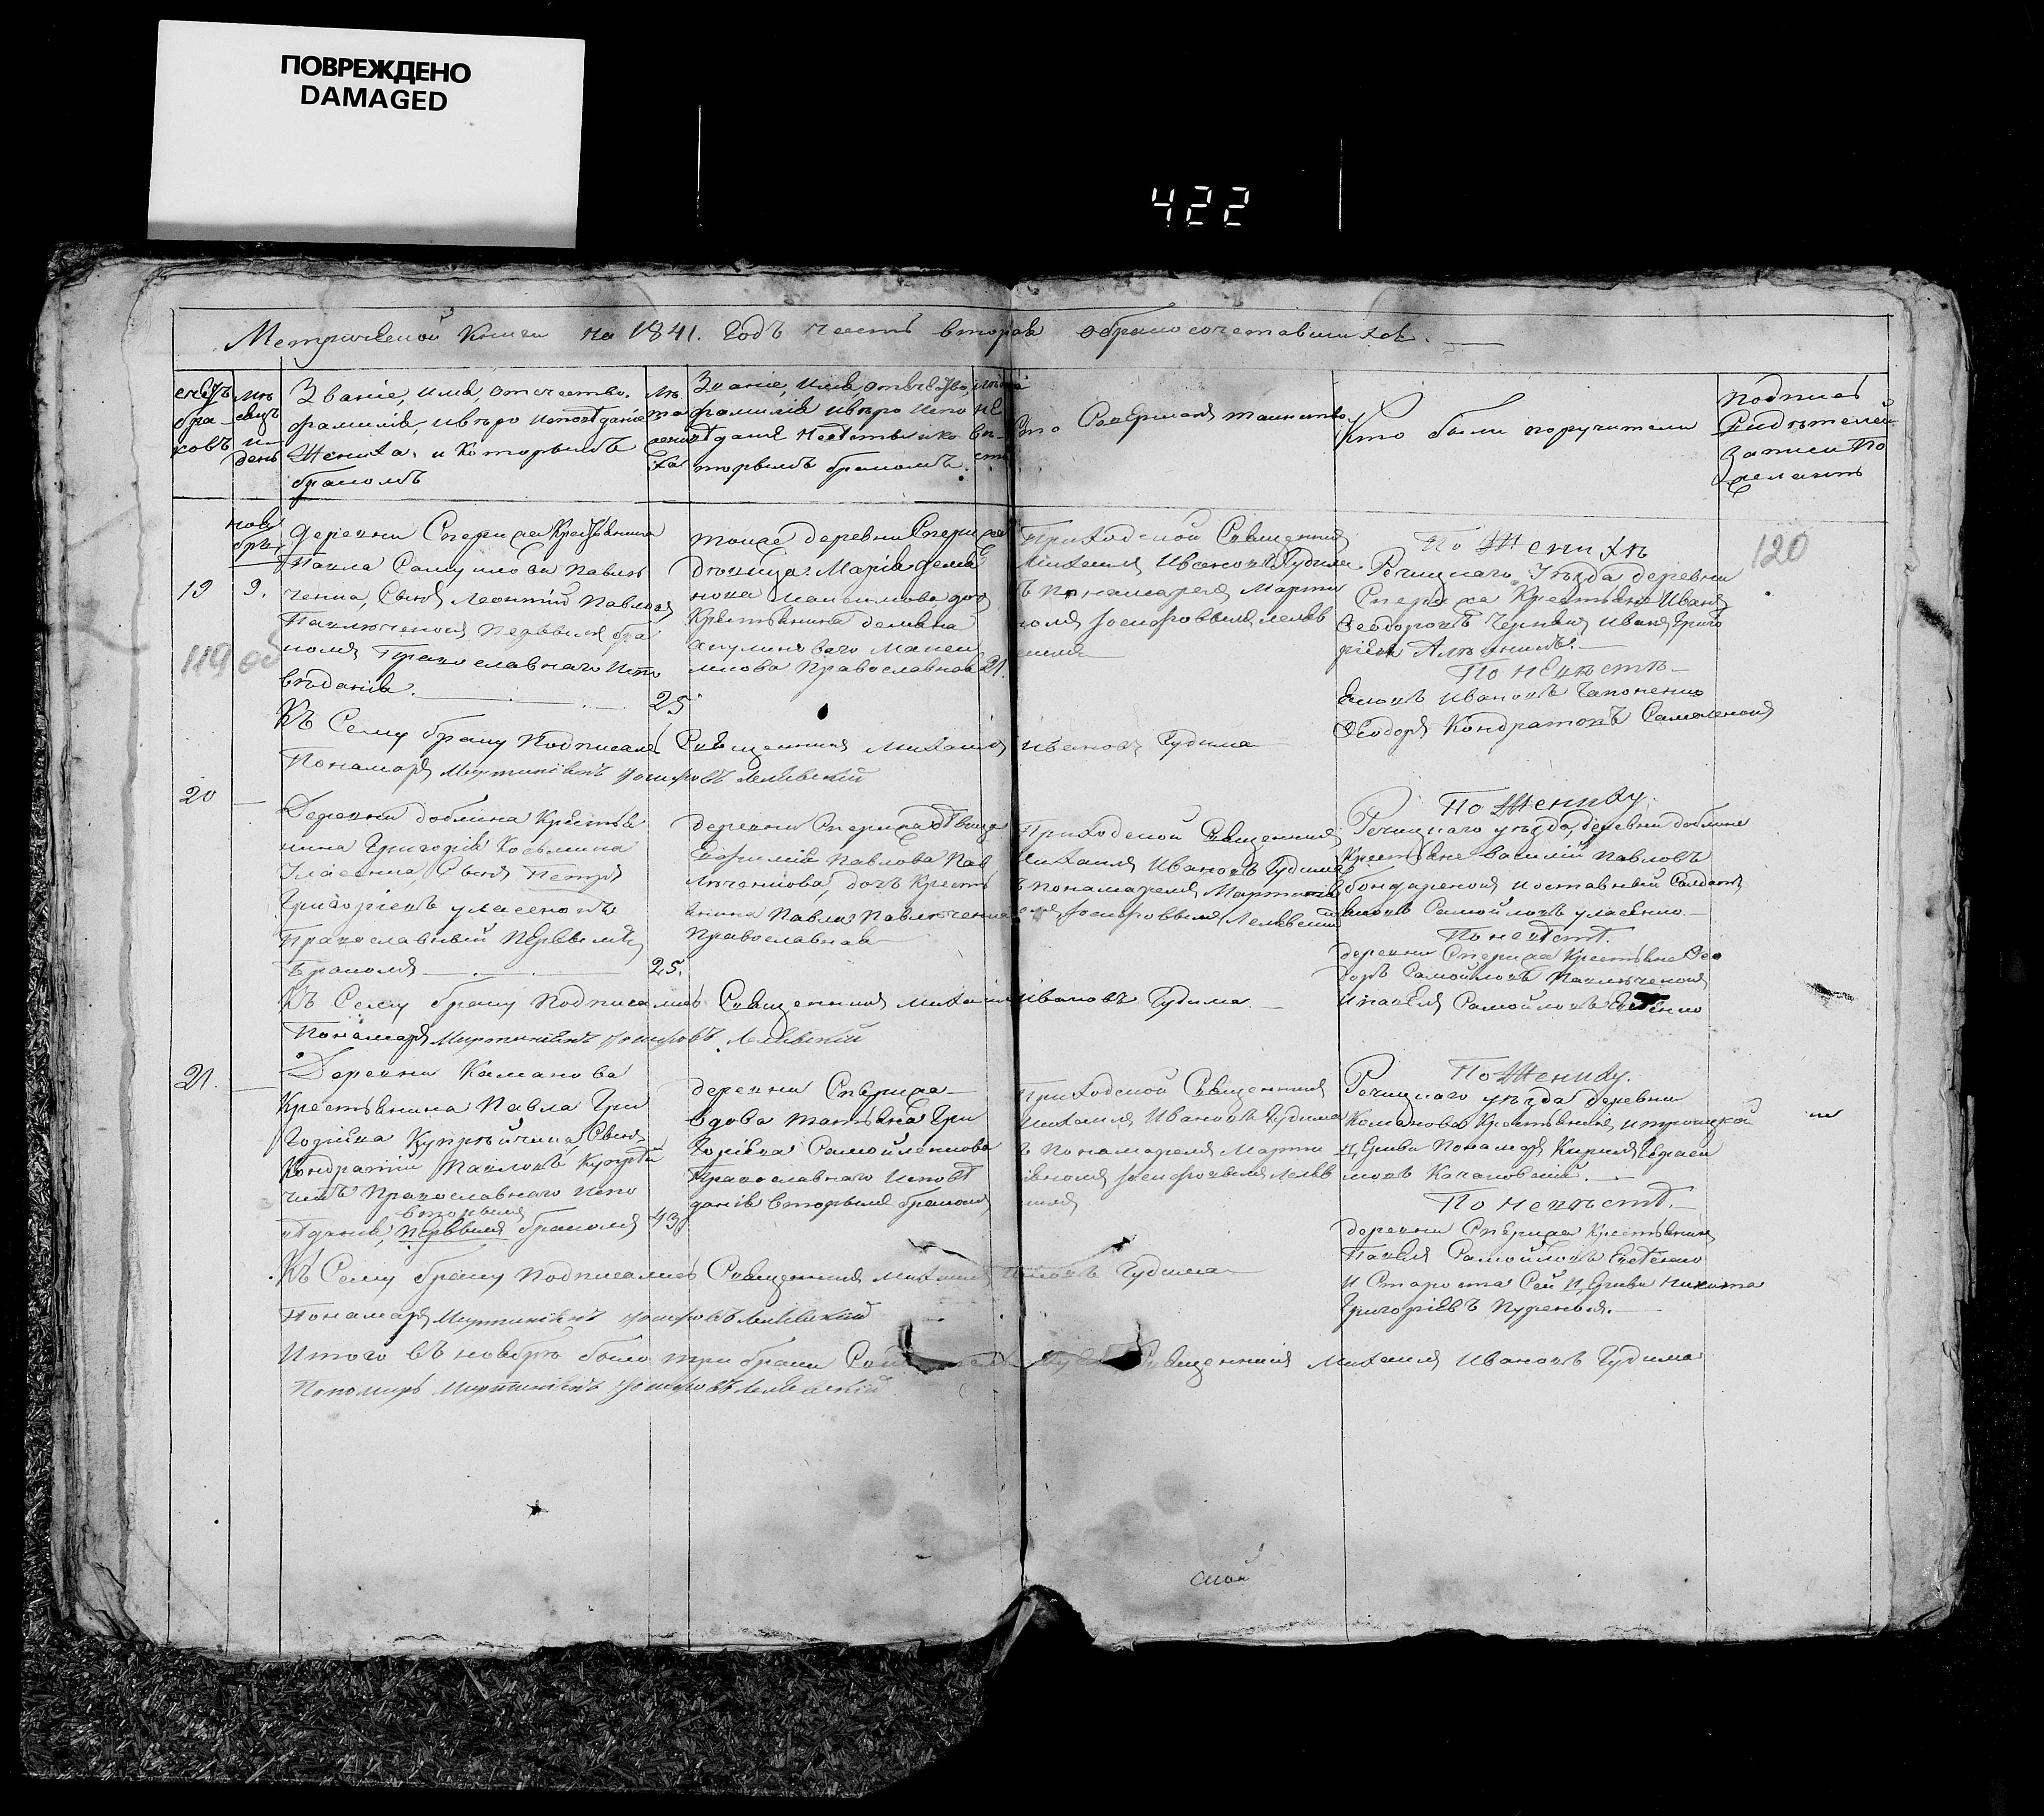 ПОВРЕЖДЕНО
DAMAGED
422
Метрической Книги на 1841. Годъ часть вторая о бракосочетавшихся.
счетъ браковъ
мѣсяцъ и день
Званіе, имя, отчество,
фамилія, и вѣроисповѣданіе
Жениха, и Которымъ
бракомъ
Лѣта жениха
Званіе, имя, отчество,
фамилія и вѣроиспо
вѣданіе Невѣсты и ко
торымъ бракомъ.
Кто Совершалъ таинство
Кто были поручители
Подпись
Свидѣтелей
Записи По
желанію
119 об
120
ноябрь
19
9.
деревни Спериж Крестьянина
Павла Самуилова Павлю
ченка, Сынъ Леонтій Павловъ
Павлюченокъ первымъ бра
комъ Православнаго Испо
вѣданія.
25
тоиже деревни Спериж
Дѣвица Марія Демья
нова Максимова доч
Крестьянина Демьяна
Макси
мова Православная 21.
Приходской Священникъ
Михаилъ Ивановъ Гудима
ъ понамаремъ Марти
номъ Іосифовымъ Леляв
скимъ
По Женихѣ
Речицкаго Уѣзда деревни
Спериж Крестьяне Иванъ
Ѳеодоровъ Чернякъ Иванъ Григо
ріевъ
По невѣстѣ
Ивановъ
Ѳеодоръ Кондратовъ
Къ Сему браку Подписались Священникъ Михаилъ Ивановъ Гудима
Понамарь Мартиніянъ Іосифовъ Лелявскій
20
Деревни Доблина Крестья
нина Григорія Косьмина
Уласенка, Сынъ Петръ
Григоріевъ Уласенокъ
Православный первымъ
бракомъ
25.
деревни Спериж дѣвица
Евфимія Павлова Пав
люченкова, дочь Кресть
янина Павла Павлюченка
Православная
Приходской Священникъ
Михаилъ Ивановъ Гудима
ъ понамаремъ Мартині
Іосифовымъ Лелявски
По Жениху.
Речицкаго уѣзда, деревни Доблина
Крестьяне Василій Павловъ
Бондаренокъ и отставный Солдатъ
Самойловъ Уласенко
По невѣстѣ.
деревни Спериж Крестьяне Ѳео
доръ Самойловъ Павлюченокъ
и Павелъ Самойловъ
Къ Сему браку Подписались Священникъ Михаилъ Ивановъ Гудима
Понамарь Мартиніянъ Іосифовъ Лелявскій
21.
Деревни Каманова
Крестьянина Павла Гри
горіева Купрѣйчика, Сынъ
Кондратій Павловъ Купрѣй
чикъ Православнаго испо
вѣданія, первымъ бракомъ
вторымъ
43
деревни Спериж
вдова Татьяна Гри
горіева Самойленкова
Православнаго исповѣ
данія вторымъ бракомъ
Приходской Священникъ
Михаилъ Ивановъ Гудима
ъ понамаремъ Марти
ніяномъ Іосифовымъ Леляв
скимъ
По Жениху.
Речицкаго уѣзда деревни
Каманова Крестьянинъ и троицкой
Церкви Понамарь Кириллъ Ефреи
мовъ Качановскій.
По невѣстѣ.
деревни Спериж Крестьянинъ
Павелъ Самойловъ
и Староста Сей Церкви Никита
Григоріевъ
Къ Сему браку Подписались Священникъ Михаилъ Ивановъ Гудима
Понамарь Мартиніянъ Іосифовъ Лелявскій
Итого въ ноябрѣ было три брака Священникъ Михаилъ Ивановъ Гудима
Пономарь Мартиніянъ Іосифовъ Лелявскій